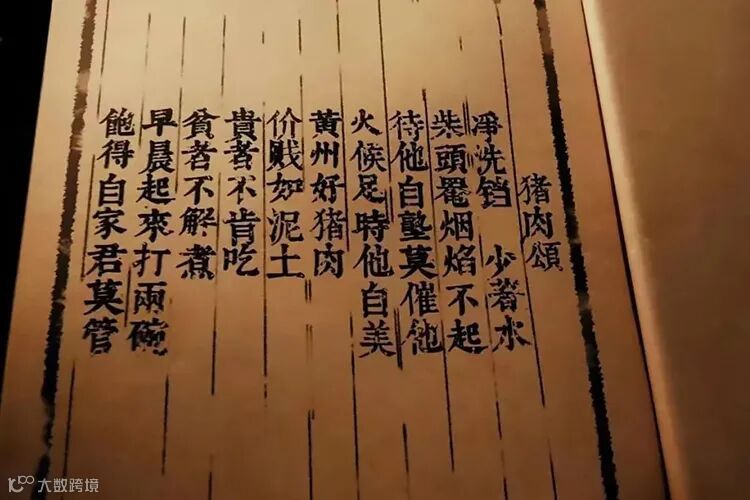 猪肉頌
凈洗铛 少著水
柴頭罨烟焰不起
待他自塾莫催他
火候足時他自美
黄州好猪肉
价贱如泥土
貴者不肯吃
貧者不解煮
早晨起來打兩碗
飽得自家君莫管
大数跨境